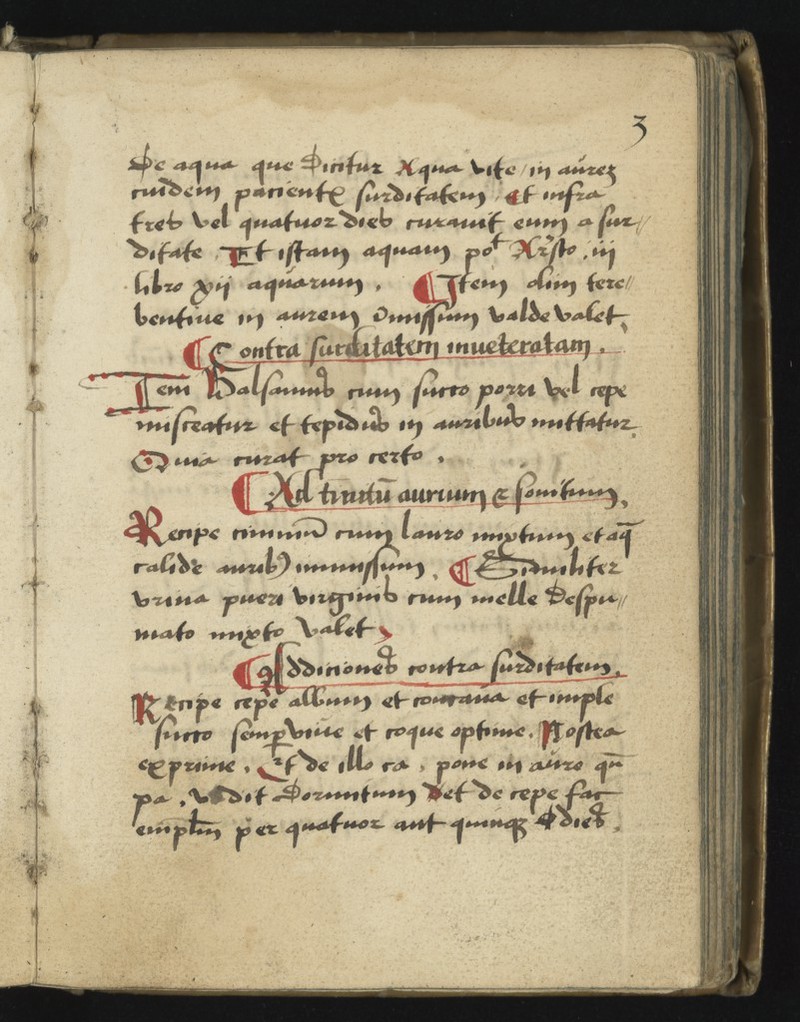 3
De aqua que dicitur Aqua vite / in aures
cuidem pacient surditatem . et infra
tres vel quatuor dies curauit eum a sur//
ditate . Et istam aquam po Arsto . iii
libro xii aquarum . ¶ Item olim tere//
bentine in aurem omissum valde valet .
¶ Contra surditatem inueteratam .
Item Balsamus cum succo porri vel cepe
misceatur et tepidus in auribus mittatur .
Quia curat pro certo .
¶ Ad tinitū aurium & sonitum .
Recipe ciminū cum lauro mixtum et aq̄
calide aurib3 inmissum . ¶ Similiter
vrina pueri virginis cum melle despu//
mato mixto valet
¶ Addiciones contra surditatem .
Recipe cepe album et concaua et imple
succo semperviue et coque optime . Postea
exprime . Et de illo ca . pone in auro qn̄
pa . vadit dormitum et de cepe fac
emplm̄ per quatuor aut quinq3 dies .